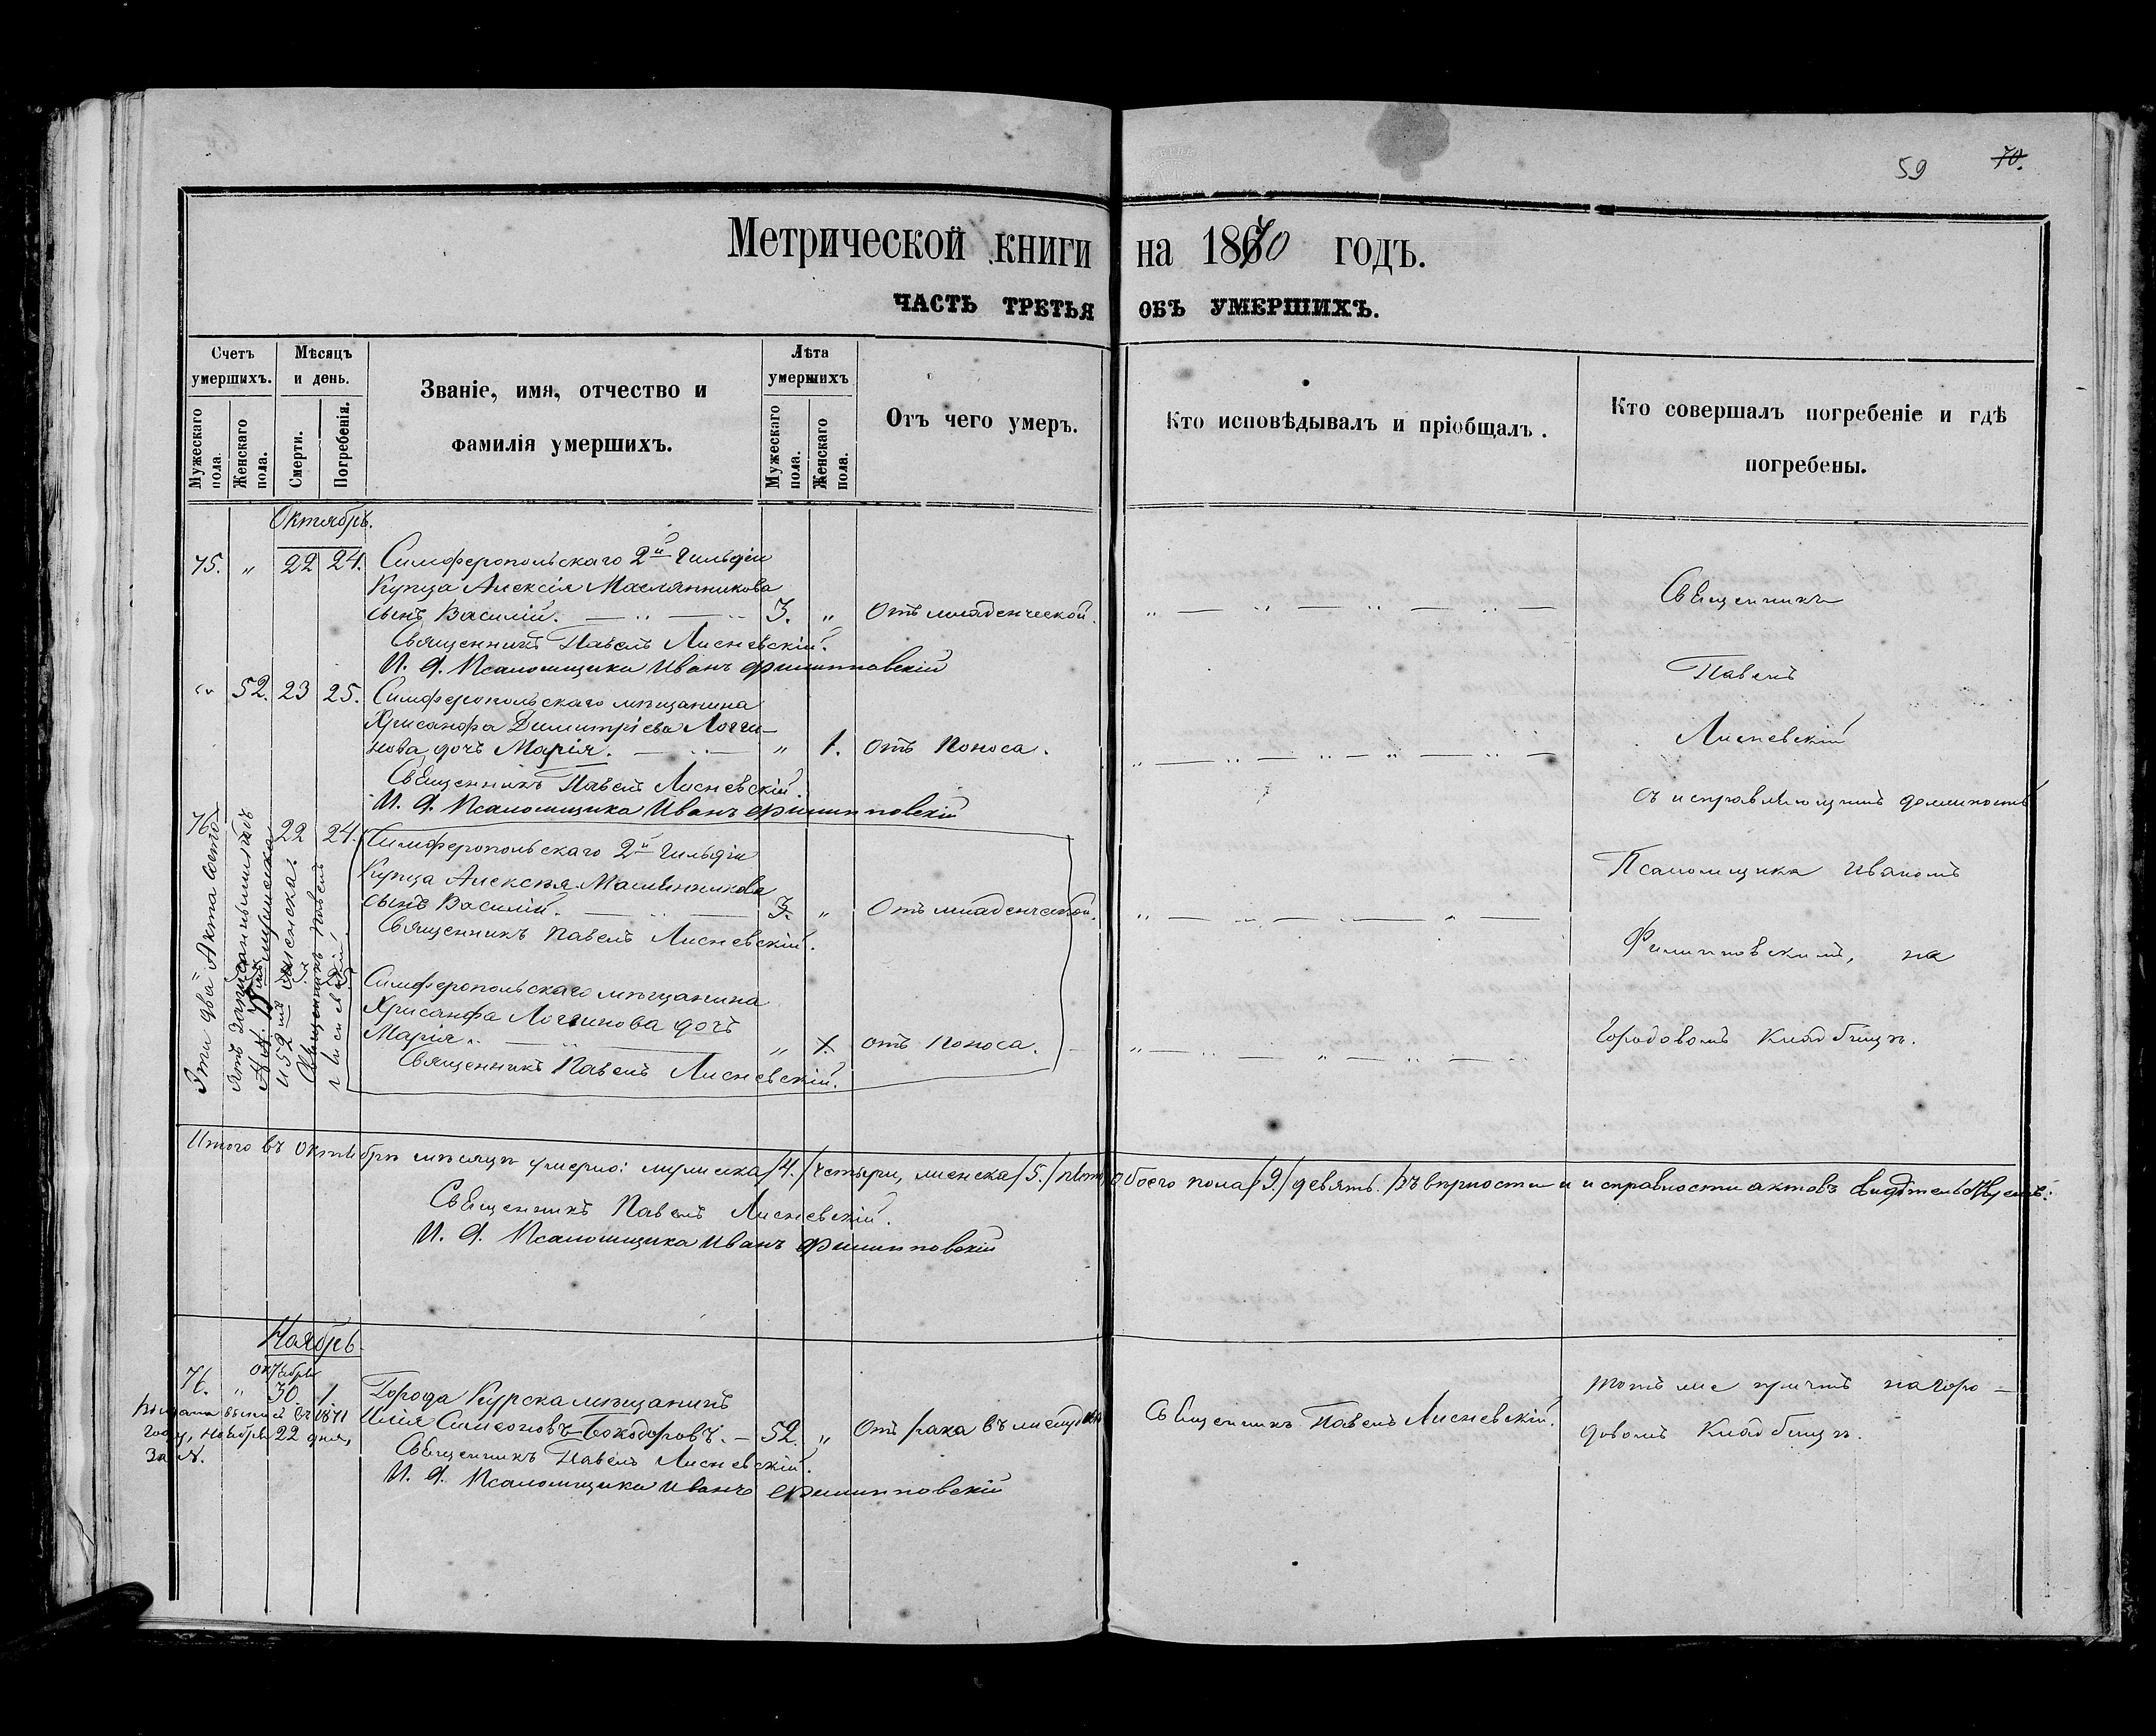 59 70.
Метрической книги на 1870 годъ.
ЧАСТЬ ТРЕТЬЯ ОБЪ УМЕРШИХЪ.
Счетъ умершихъ.
Мужескаго пола.
Женскаго пола.
Мѣсяцъ и день.
Смерти.
Погребенія.
Званіе, имя, отчество и
фамилія умершихъ.
Лѣта умершихъ
Мужескаго пола.
Женскаго пола.
Отъ чего умеръ.
Кто исповѣдывалъ и пріобщалъ.
Кто совершалъ погребеніе и гдѣ
погребены.
Октябрь.
75. " 22 24. Симферопольскаго 2й Гильдіи
Купца Алексія Маслянникова
сынъ Василій. 3. " Отъ младенческой.
Священникъ Павелъ Лисневскій.
И. д. Псаломщика Иванъ Филипповскій
" 52. 23 25. Симферопольскаго мѣщанина
Хрисанфа Димитріева Логги-
нова дочь Марія. " 1. Отъ поноса.
Священникъ Павелъ Лисневскій.
И. д. Псаломщика Иванъ Филипповскій
76. 22 24. Симферопольскаго 2й Гильдіи
Купца Алексѣя Маслянникова
сынъ Василій. 3. " Отъ младенческой.
Священникъ Павелъ Лисневскій.
Симферопольскаго мѣщанина
Хрисанфа Логгинова дочь
Марія. " 1. отъ поноса.
Священникъ Павелъ Лисневскій.
Эти два Акта
и 52 женска.
Священникъ Павелъ
Лисневскій
Священникъ
Павелъ
Лисневскій
съ исправляющимъ должность
Псаломщика Иваномъ
Филипповскимъ, на
Городовомъ Кладбищѣ.
Итого въ Октябрѣ мѣсяцѣ умерло: мужеска /4./ четыре, женска /5./ пять, обоего пола /9./ девять. Въ вѣрности и исправности актовъ свидѣтельствуемъ:
Священникъ Павелъ Лисневскій.
И. д. Псаломщика Иванъ Филипповскій
Ноябрь.
Октября
76. " 30 1. Города Курска мѣщанинъ
Илія Симеоновъ 52. " Отъ рака въ желудкѣ
Священникъ Павелъ Лисневскій.
И. д. Псаломщика Иванъ Филипповскій
въ 1871
году, Ноября 22 дня,
за №.
Священникъ Павелъ Лисневскій.
тотъ же причтъ на горо-
довомъ Кладбищѣ.